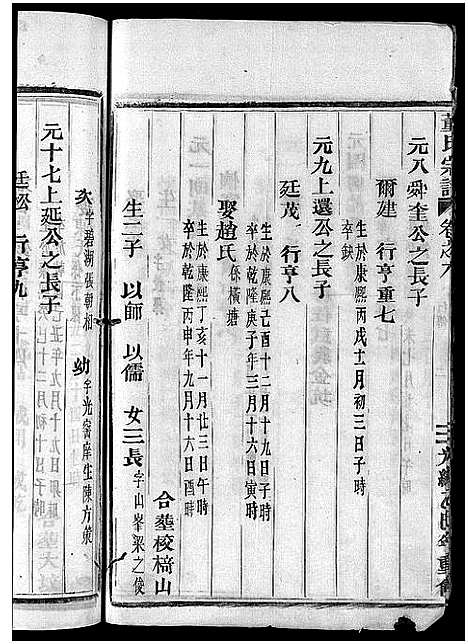 氏宗譜 卷之八
元八舜奎公之長子
爾建 行亨重七
生於康熙丙戌十二月初三日子時
卒缺
元九上選公之長子
廷茂 行亨八
生於康熙己酉十二月十九日子時
卒於乾隆庚子年三月十六日寅時
娶趙氏 係橫塘
生於康熙丁亥十一月廿三日午時
卒於乾隆丙申年九月十六日寅時
合塟校棓山
生二子 以師 以儒 女三長 字山峯梁之俊
次 字碧湖張朝相 幼 字光窖庠生陳方策
元十七上延公之長子
廷 行亨九
丑年九月十九日卯
巳十二月初十日子時